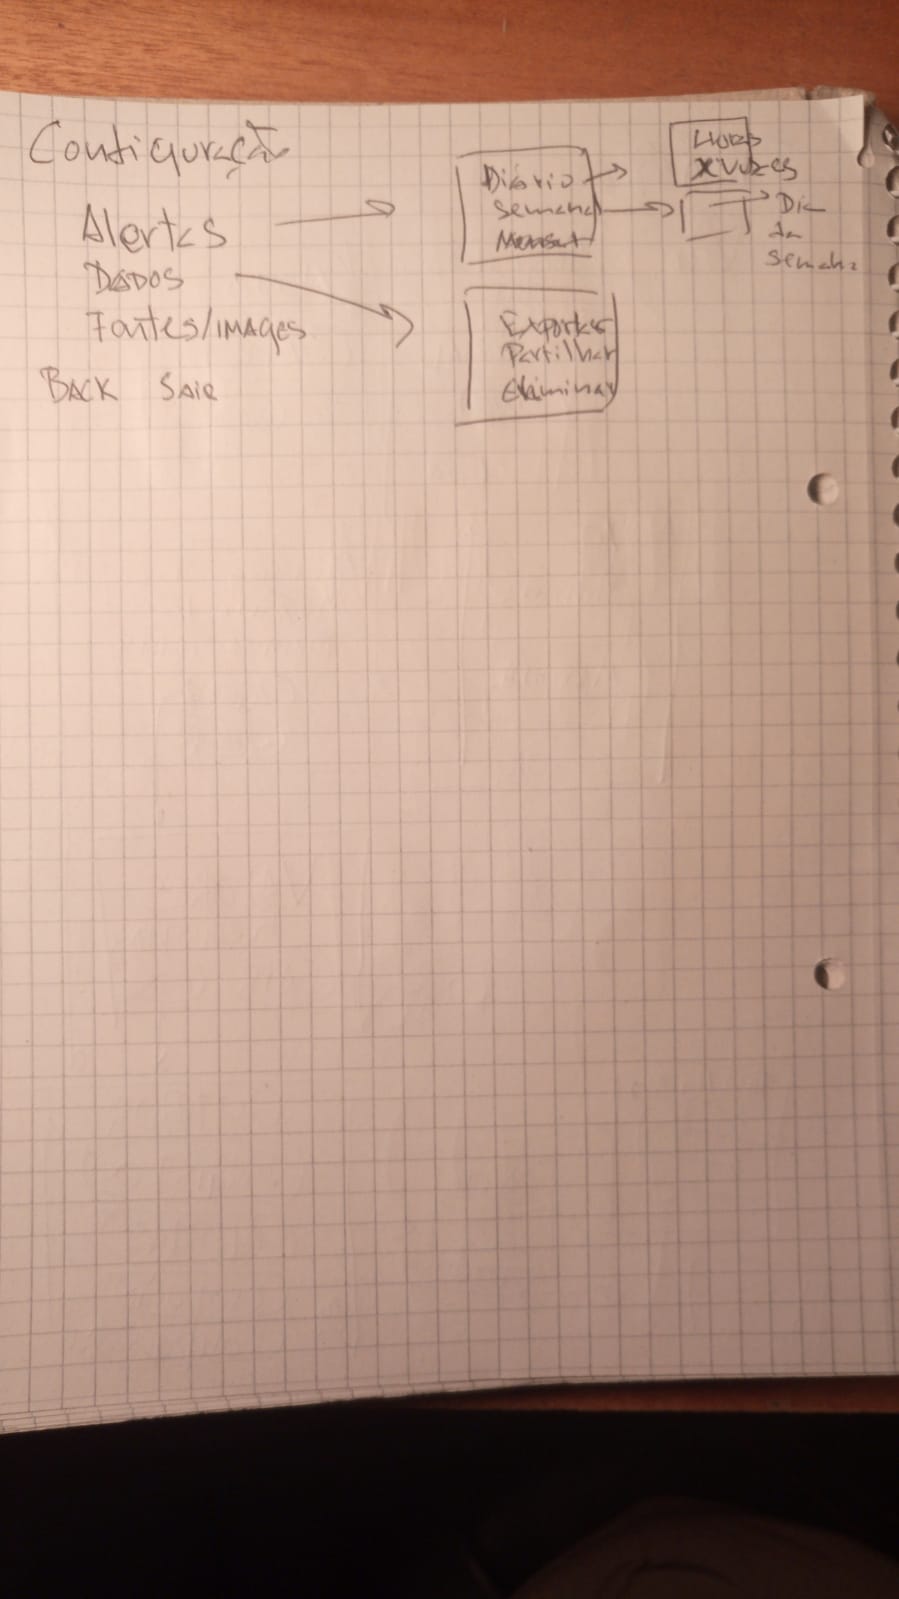 Configuração
Alertas
Dados
Fontes/IMAGES
BACK SAIR
Diário
Semanal
Mensal
Horas
X Vezes
Dia
da
semana
Exportar
Partilhar
Eliminar